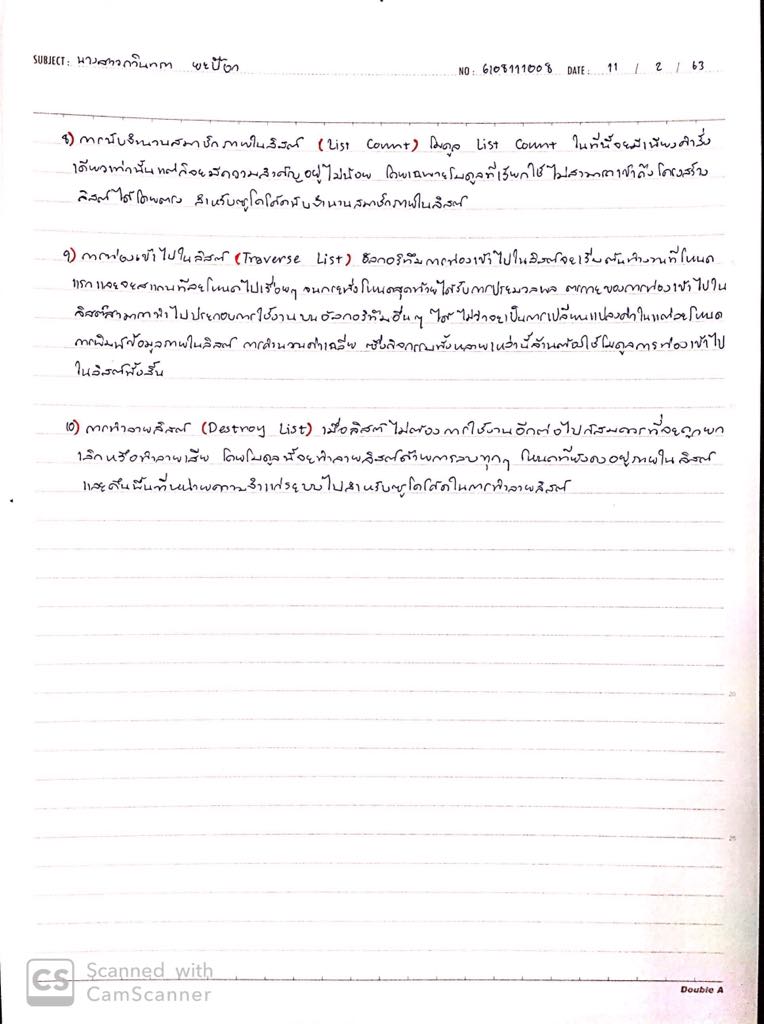 SUBJECT: นางสาวกวินทกา พะปีตา
NO: 6108111008 DATE: 11 / 2 / 63
8) การนับจำนวนสมาชิกภายในลิสต์ (List Count) โมดูล List Count ในที่นี้จะมีเพียงคำสั่ง
เดียวเท่านั้นแต่ก็จะมีความสำคัญอยู่ไม่น้อย โดยเฉพาะโมดูลที่เรียกใช้ไม่สามารถเข้าถึงโครงสร้าง
ลิสต์ได้โดยตรง สำหรับซูโดโค้ดนับจำนวนสมาชิกภายในลิสต์
9) การท่องเข้าไปในลิสต์ (Traverse List) อัลกอริทึมการท่องเข้าไปในลิสต์จะเริ่มต้นทำงานที่โหนด
แรกและจะสแกนทีละโหนดไปเรื่อยๆ จนกระทั่งโหนดสุดท้ายได้รับการประมวลผล ตรรกะของการท่องเข้าไปใน
ลิสต์สามารถนำไปประกอบการใช้งานบนอัลกอริทึมอื่นๆ ได้ ไม่ว่าจะเป็นการเปลี่ยนแปลงค่าในแต่ละโหนด
การพิมพ์ข้อมูลภายในลิสต์ การคำนวณค่าเฉลี่ย ซึ่งกิจกรรมทั้งหลายเหล่านี้ล้วนต้องใช้โมดูลการท่องเข้าไป
ในลิสต์ทั้งสิ้น
10) การทำลายลิสต์ (Destroy List) เมื่อลิสต์ไม่ต้องการใช้งานอีกต่อไปก็สมควรที่จะถูกยก
เลิกหรือทำลายเสีย โดยโมดูลนี้จะทำลายลิสต์ด้วยการลบทุกๆ โหนดที่ยังคงอยู่ภายในลิสต์
และคืนพื้นที่หน่วยความจำแก่ระบบไปสำหรับซูโดโค้ดในการทำลายลิสต์
20
25
CS Scanned with
CamScanner
Double A